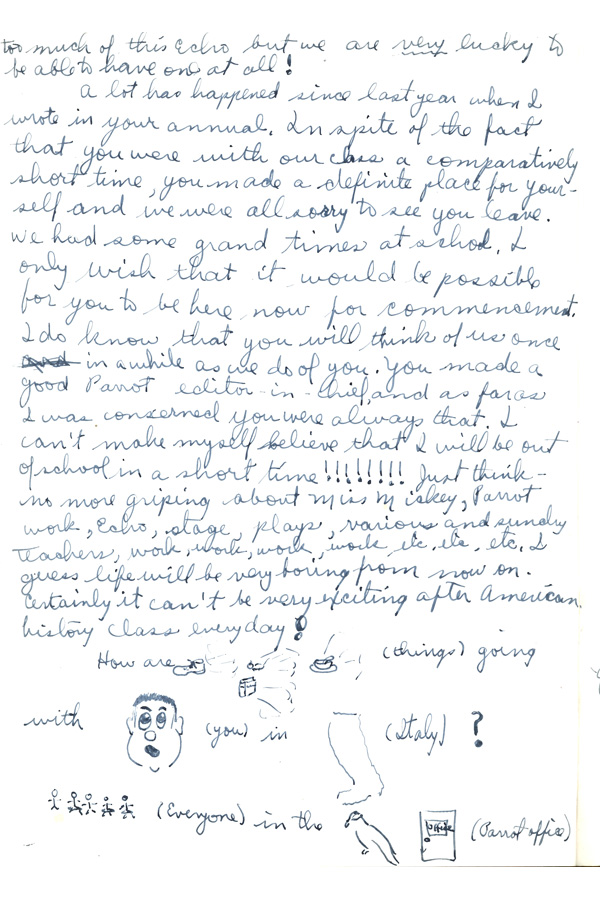 too much of this Echo but we are very lucky to
be able to have one at all!
A lot has happened since last year when I
wrote in your annual. In spite of the fact
that you were with our class a comparatively
short time, you made a definite place for your-
self and we were all sorry to see you leave.
We had some grand times at school. I
only wish that it would be possible
for you to be here now for commencement.
I do know that you will think of us once
in awhile as we do of you. You made a
good Parrot editor-in-chief, and as far as
I was concerned you were always that. I
can't make myself believe that I will be out
of school in a short time!!!!!!!! Just think-
no more griping about Miss Miskey, Parrot
work, Echo, stage, plays, various and sundry
teachers, work, work, work, work etc. etc. etc. I
guess life will be very boring from now on.
Certainly it can't be very exciting after American
history class everyday!
How are (things) going
with (you) in (Italy) ?
(Everyone) in the Office (Parrot office)